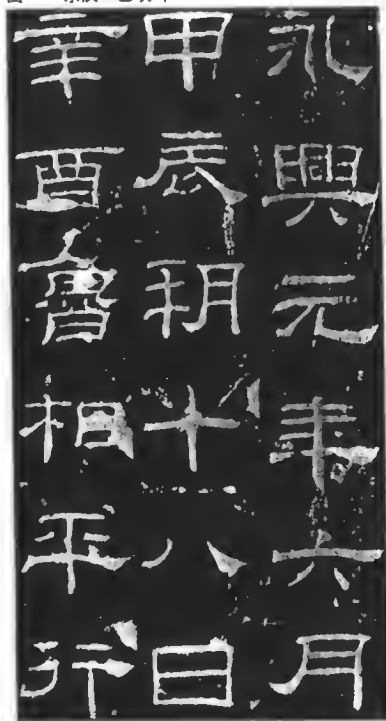 永興元年六月
甲辰朔十八日
辛酉魯相平行